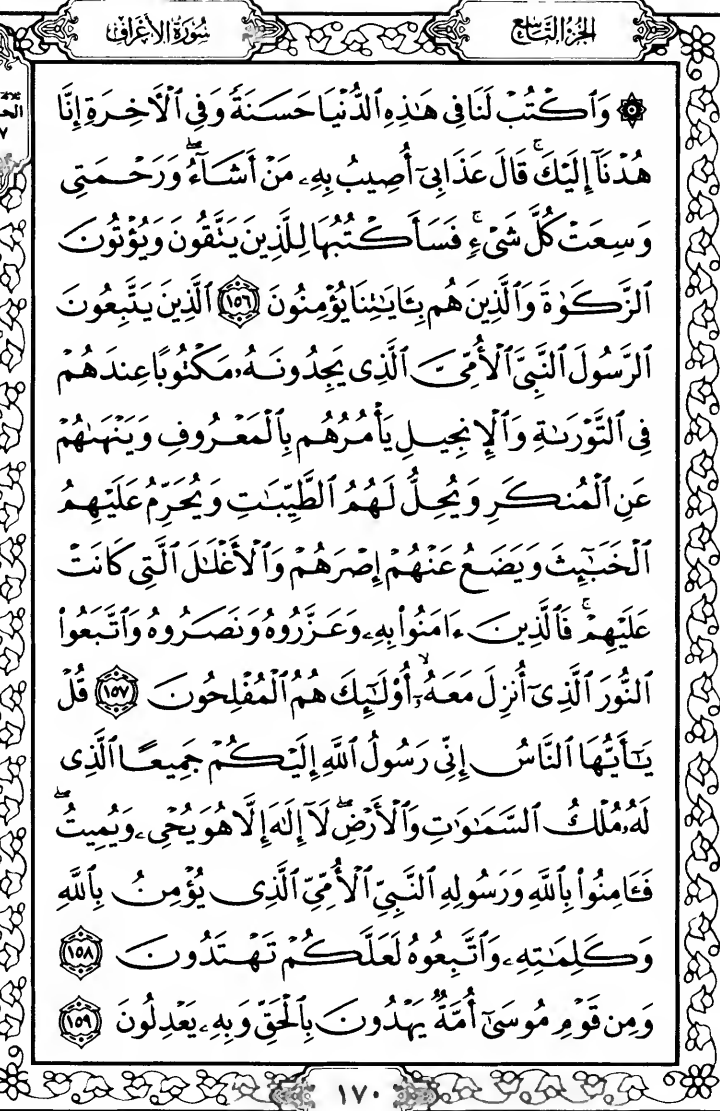 الجزء التاسع
سورة الأعراف
الحز
٧
۞ وَٱكۡتُبۡ لَنَا فِي هَٰذِهِ ٱلدُّنۡيَا حَسَنَةٗ وَفِي ٱلۡأٓخِرَةِ إِنَّا
هُدۡنَآ إِلَيۡكَۚ قَالَ عَذَابِيٓ أُصِيبُ بِهِۦ مَنۡ أَشَآءُۖ وَرَحۡمَتِي
وَسِعَتۡ كُلَّ شَيۡءٖۚ فَسَأَكۡتُبُهَا لِلَّذِينَ يَتَّقُونَ وَيُؤۡتُونَ
ٱلزَّكَوٰةَ وَٱلَّذِينَ هُم بِـَٔايَٰتِنَا يُؤۡمِنُونَ ١٥٦ ٱلَّذِينَ يَتَّبِعُونَ
ٱلرَّسُولَ ٱلنَّبِيَّ ٱلۡأُمِّيَّ ٱلَّذِي يَجِدُونَهُۥ مَكۡتُوبًا عِندَهُمۡ
فِي ٱلتَّوۡرَىٰةِ وَٱلۡإِنجِيلِ يَأۡمُرُهُم بِٱلۡمَعۡرُوفِ وَيَنۡهَىٰهُمۡ
عَنِ ٱلۡمُنكَرِ وَيُحِلُّ لَهُمُ ٱلطَّيِّبَٰتِ وَيُحَرِّمُ عَلَيۡهِمُ
ٱلۡخَبَٰٓئِثَ وَيَضَعُ عَنۡهُمۡ إِصۡرَهُمۡ وَٱلۡأَغۡلَٰلَ ٱلَّتِي كَانَتۡ
عَلَيۡهِمۡۚ فَٱلَّذِينَ ءَامَنُواْ بِهِۦ وَعَزَّرُوهُ وَنَصَرُوهُ وَٱتَّبَعُواْ
ٱلنُّورَ ٱلَّذِيٓ أُنزِلَ مَعَهُۥٓۙ أُوْلَٰٓئِكَ هُمُ ٱلۡمُفۡلِحُونَ ١٥٧ قُلۡ
يَٰٓأَيُّهَا ٱلنَّاسُ إِنِّي رَسُولُ ٱللَّهِ إِلَيۡكُمۡ جَمِيعًا ٱلَّذِي
لَهُۥ مُلۡكُ ٱلسَّمَٰوَٰتِ وَٱلۡأَرۡضِۖ لَآ إِلَٰهَ إِلَّا هُوَ يُحۡيِۦ وَيُمِيتُۖ
فَـَٔامِنُواْ بِٱللَّهِ وَرَسُولِهِ ٱلنَّبِيِّ ٱلۡأُمِّيِّ ٱلَّذِي يُؤۡمِنُ بِٱللَّهِ
وَكَلِمَٰتِهِۦ وَٱتَّبِعُوهُ لَعَلَّكُمۡ تَهۡتَدُونَ ١٥٨
وَمِن قَوۡمِ مُوسَىٰٓ أُمَّةٞ يَهۡدُونَ بِٱلۡحَقِّ وَبِهِۦ يَعۡدِلُونَ ١٥٩
١٧٠